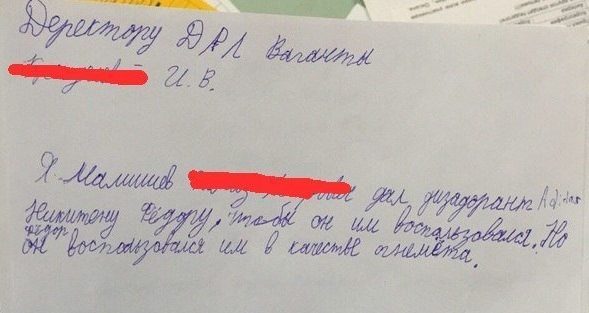 Деректору ДОЛ Ваганты
И.В.
Я Малишев дал дизадорант Adidas
Никитену Фёдору, что-бы он им воспользовался. Но
Фёдор
он воспользовался им в качестве огнемёта.